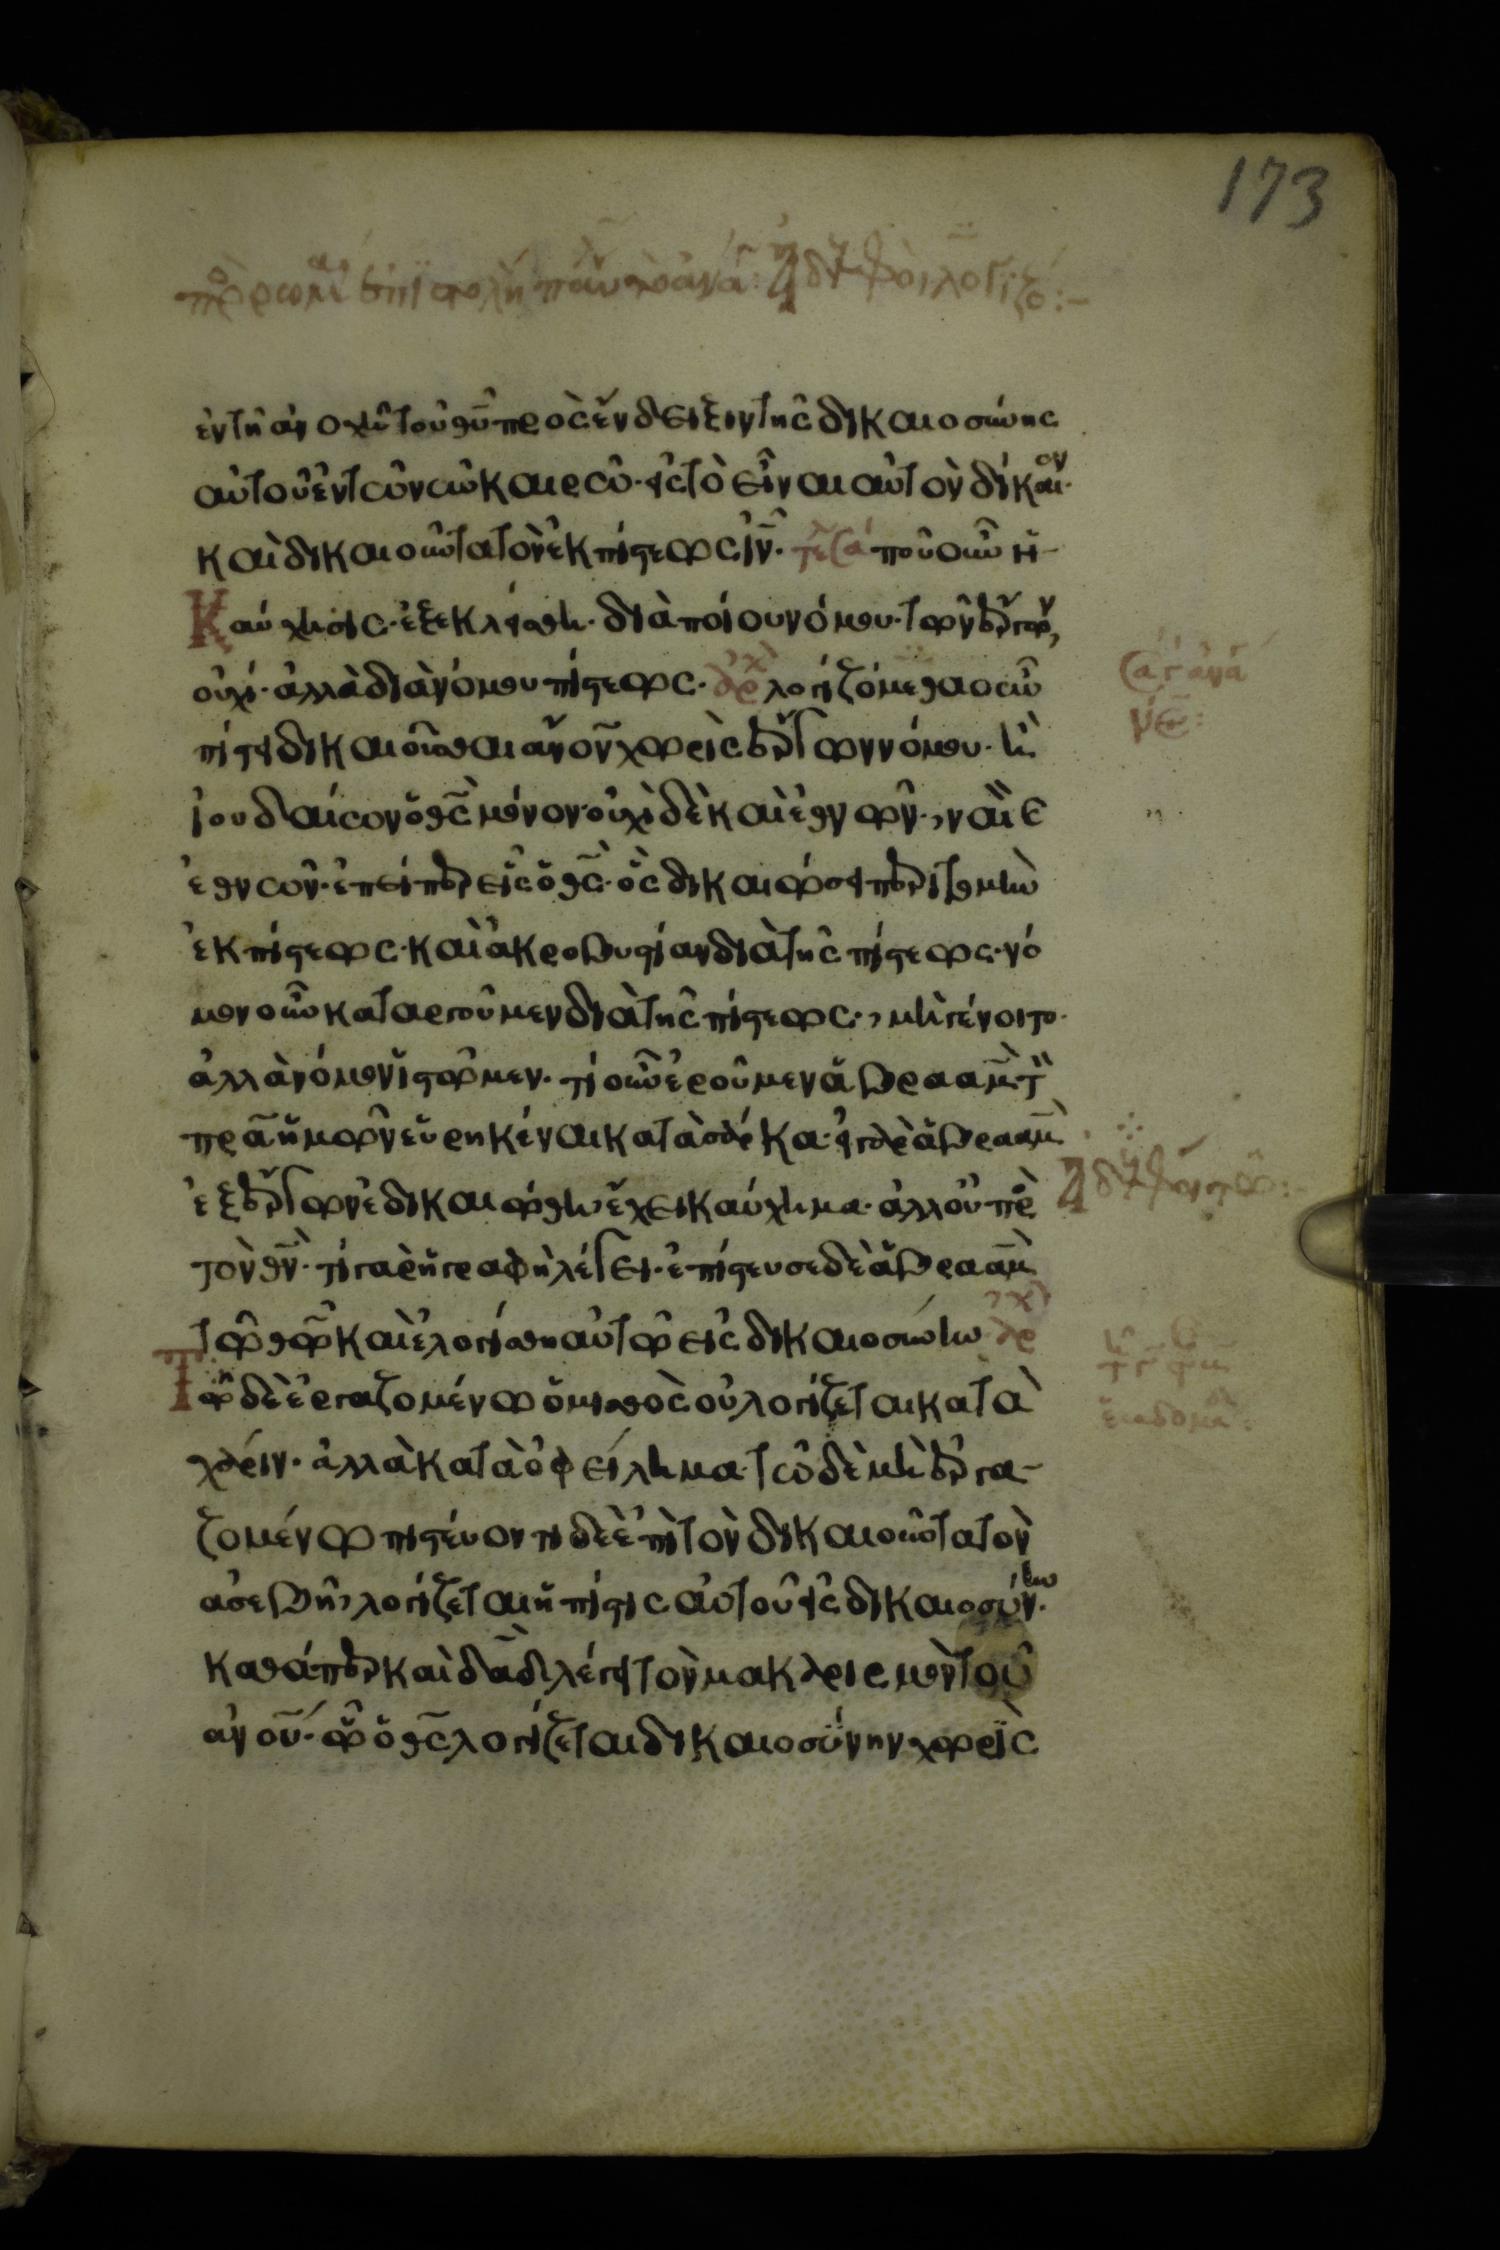 173
ἐν τῆ ἀνοχῆ τοῦ θυ προς ἔνδειξιν τῆς δικαιοσύνης
αὐτοῦ ἐν τῶ νῦν καιρῶ· εἰς τὸ εἶναι αὐτὸν δίκαιον·
καὶ δικαιοῦντα τὸν ἐκ πίστεως ιυ· ποῦ οὖν ἡ
Καύχησις· ἐξεκλείσθη· διὰ ποίου νόμου· τῶν ἔργων,
οὐχί· ἀλλὰ διὰ νόμου πίστεως· λογιζόμεθα οὖν
πίστει δικαιοῦσθαι ανον χωρὶς ἔργων νόμου· ἢ
ἰουδαίων ὁ θς μόνον· οὐχὶ δὲ καὶ ἐθνῶν· ναὶ
ἐθνῶν· ἐπείπερ εἷς ὁ θς· ὃς δικαιώσει περιτομὴν
ἐκ πίστεως· καὶ ἀκροβυστίαν διὰ τῆς πίστεως· νό
μον οὖν καταργοῦμεν διὰ τῆς πίστεως· μὴ γένοιτο·
ἀλλὰ νόμον ἱστῶμεν· τί οὖν ἐροῦμεν ἀβρααμ τὸν
πρα ἡμῶν εὑρηκέναι κατὰ σάρκα· εἰ γὰρ ἀβρααμ
ἐξ ἔργων ἐδικαιώθη ἔχει καύχημα· ἀλλ οὐ πρὸς
τὸν θν· τί γὰρ ἡ γραφὴ λέγει· ἐπίστευσε δὲ ἀβρααμ
τῶ θω καὶ ἐλογίσθη αὐτῶ εἰς δικαιοσύνην
Τῶ δὲ ἐργαζομένω ὁ μισθὸς οὐ λογίζεται κατὰ
χάριν· ἀλλὰ κατὰ ὀφείλημα· τῶ δὲ μὴ ἐργα
ζομένω πιστεύοντι δὲ ἐπὶ τὸν δικαιοῦντα τὸν
ἀσεβῆ, λογίζεται ἡ πίστις αὐτοῦ εἰς δικαιοσύνην·
καθάπερ καὶ δαδ λέγει τὸν μακαρισμὸν τοῦ
ἀνου· ὧ ὁ θς λογίζεται δικαιοσύνην χωρὶς